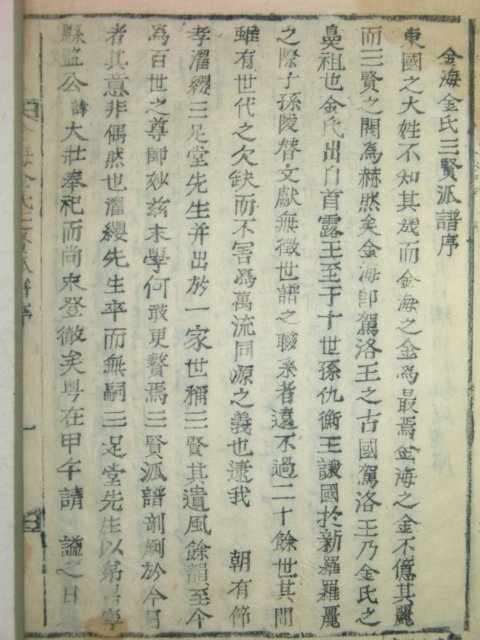 金海金氏三賢派譜序
東國之大姓不知其幾而金海之金為最焉金海之金不億其麗
而三賢之闕為赫然矣金海卽駕洛王之古國駕洛王乃金氏之
鼻祖也金氏出自首露王至于十世孫仇衡王讓國於新羅羅麗
之際子孫陵替文獻無徵世譜之聯系者遠不過二十餘世其間
雖有世代之欠缺而不害為萬流同源之義也逮我 朝有節
孝濯纓三足堂先生并出於一家世稱三賢其遺風餘韻至今
為百世之尊師玅玆末學何敢更贅焉三賢派譜剞劂於今日
者其意非偶然也濯纓先生卒而無嗣三足堂先生以弟
縣監公諱大壯奉祀而尚未登徹矣在甲午請 謚之日